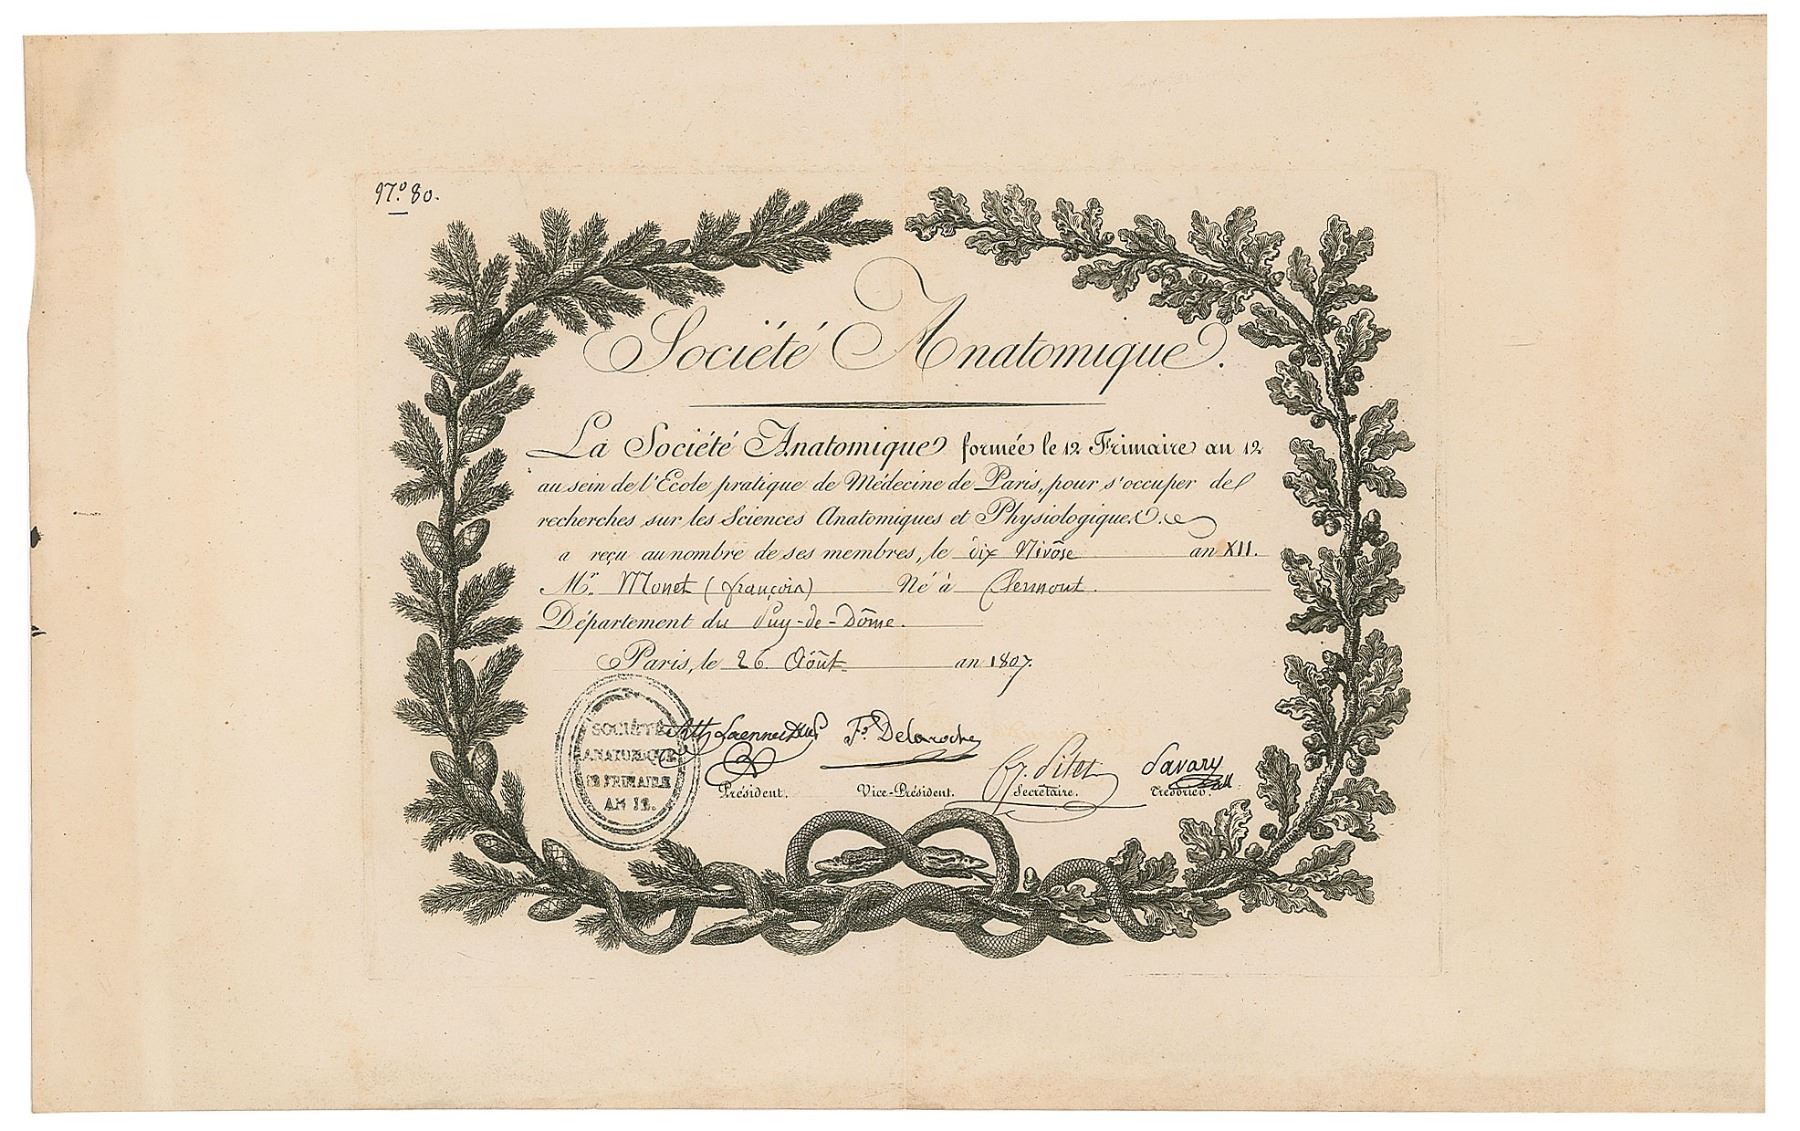 N.° 80.
Société Anatomique.
La Société Anatomique formée le 12 Frimaire an 12
au sein de l'Ecole pratique de Médecine de Paris, pour s'occuper de
recherches sur les Sciences Anatomiques et Physiologiques.
a reçu au nombre de ses membres, le dix Nivôse an XII.
Mr. Monet (françois) Né à Clermont.
Département du Puy-de-Dôme.
Paris, le 26 Août an 1807.
SOCIÉTÉ
ANATOMIQUE
12 FRIMAIRE
AN 12.
Laennec F. Delaroche
Savary
Président. Vice-Président. Secrétaire. Trésorier.